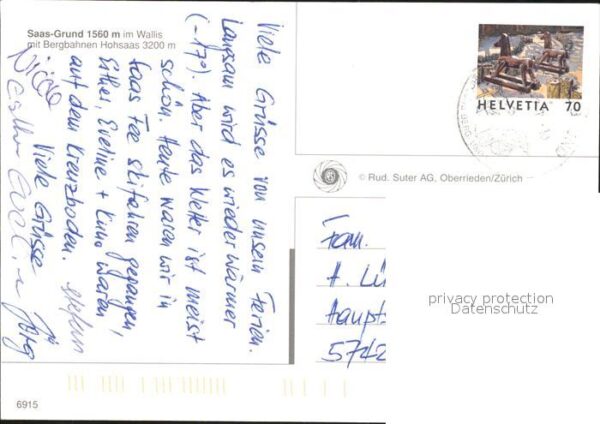 Saas-Grund 1560 m im Wallis
mit Bergbahnen Hohsaas 3200 m
Viele Grüsse von unsern Ferien.
Langsam wird es wieder wärmer
(-17°). Aber das Wetter ist meist
schön. Heute waren wir in
Saas Fee skifahren gegangen,
Esther, Eveline + waren
auf dem Kreuzboden.
Viele Grüsse
Jürg
Stefan
Esther
Nico
HELVETIA 70
© Rud. Suter AG, Oberrieden/Zürich
Fam.
H. Lü
Haupts
5742
privacy protection
Datenschutz
6915